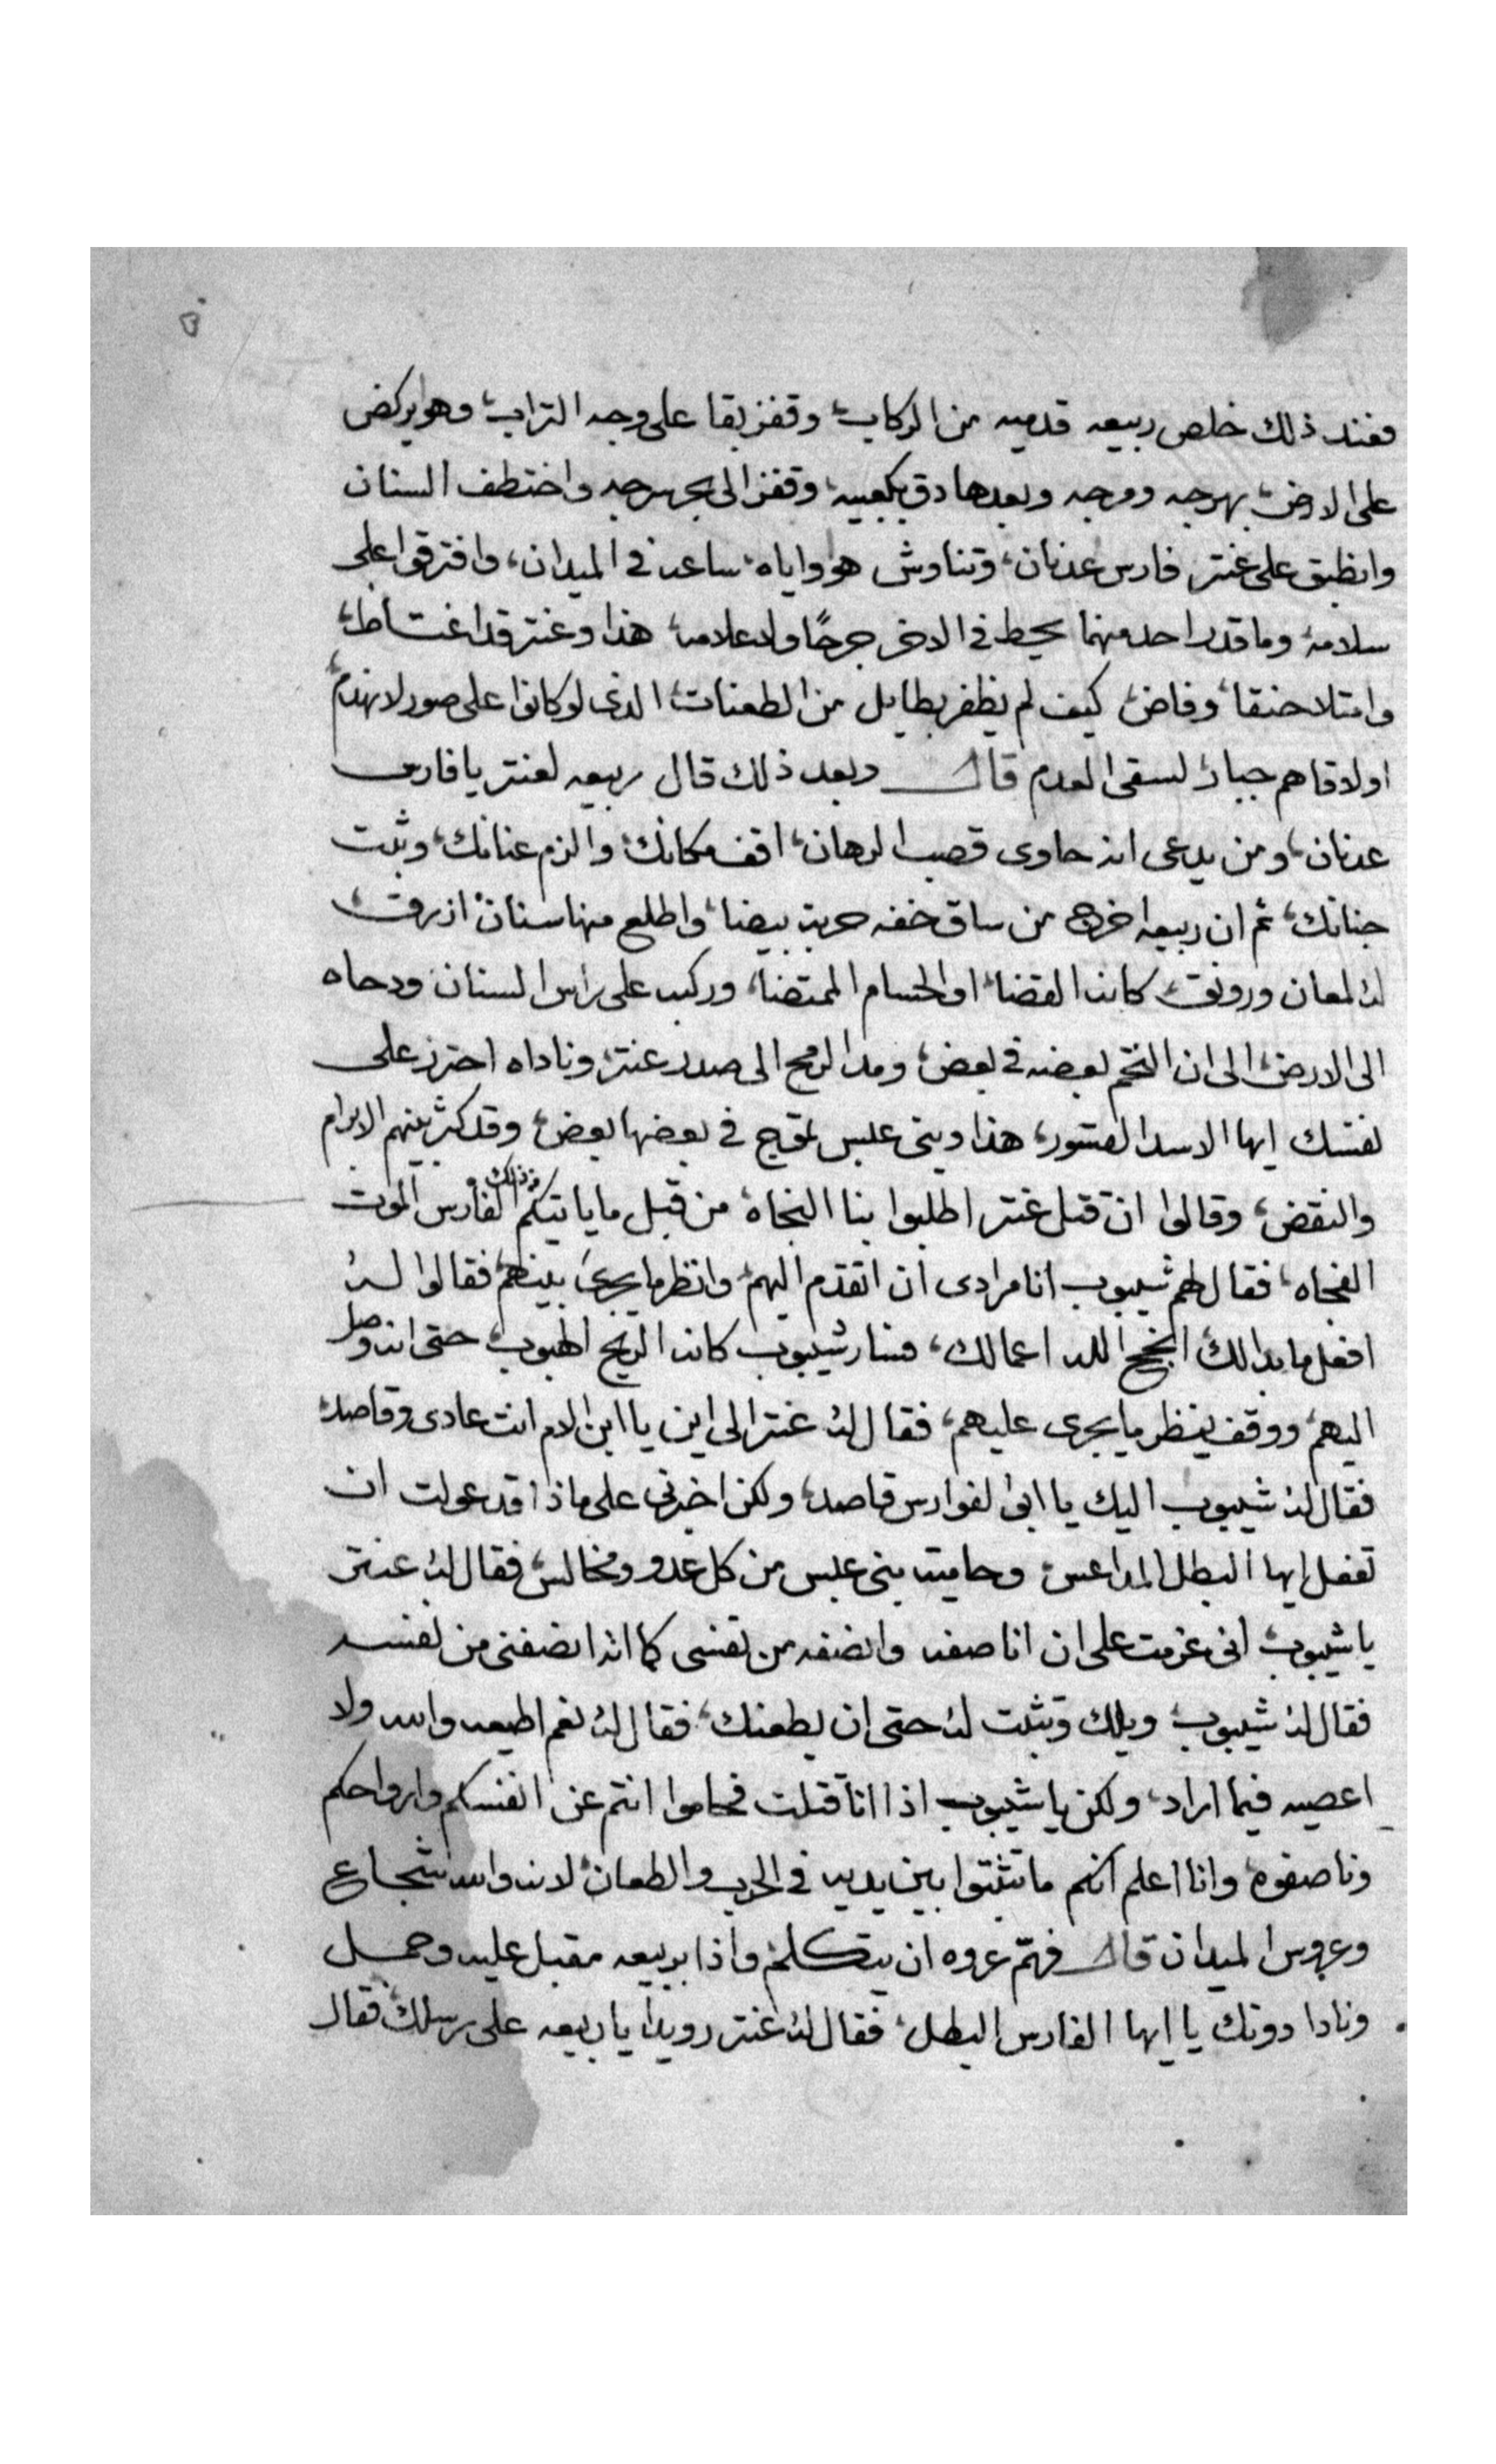 فعند ذلك خلص ربيعه قدميه من الركاب وقفز بقا على وجه التراب وهو يركض
على الارض بهرجه ومرجه وبعدها دق بكعبيه وقفز الى بحر سرجه واختطف السنان
وانطبق على عنتر فارس عدنان وتناوش هو واياه ساعه في الميدان، وافترقوا على
سلامه وما قدر احد منهما يحط في الاخر جرحًا ولا علامه هذا وعنتر قد اغتاظ
وامتلا حنقا وفاض كيف لم يظفر بطايل من الطعنات الذى لو كانوا على صور لانهدم
او لاقاهم جبار لسقى العدم قال وبعد ذلك قال ربيعه لعنتر يا فارس
عدنان، ومن يدعى انه حاوى قصب الرهان اقف مكانك والزم عنانك وثبت
جنانك ثم ان ربيعه اخرج من ساق خفه حربه بيضا واطلع منها سنان ازرق
له لمعان ورونق كانه القضا او الحسام الممتضا، وركب على راس السنان ودحاه
الى الارض الى ان التحم بعضه في بعض ومد الرمح الى صدر عنتر وناداه احترز على
نفسك ايها الاسد القسور، هذا وبنى عبس تموج في بعضها بعض وقد كثر بينهم الابرام
والنقض، وقالوا ان قتل عنتر اطلبوا بنا النجاه من قبل ما ياتيكم من ذلك الفارس الموت
الفجاه، فقال لهم شيبوب انا مرادى ان اتقدم اليهم وانظر ما يجرى بينهم فقالوا له
افعل ما بدالك انجح الله اعمالك، فسار شيبوب كانه الريح الهبوب حتى انه وصل
اليهم ووقف ينظر ما يجرى عليهم، فقال له عنتر الى اين يا ابن الام انت عادى وقاصد
فقال له شيبوب اليك يا ابى الفوارس قاصد، ولكن اخبرنى على ماذا قد عولت ان
تفعل ايها البطل المداعس وحاميه بنى عبس من كل عدو ومخالس فقال له عنتر
يا شيبوب انى عزمت على ان اناصفه وانصفه من نفسى كما انه انصفنى من نفسه
فقال له شيبوب ويلك وتثبت له حتى ان يطعنك فقال له نعم اطيعه والله ولا
اعصيه فيما اراد، ولكن يا شيبوب اذا انا قتلت فحاموا انتم عن انفسكم وارواحكم
وناصفوه وانا اعلم انكم ما تثبتوا بين يديه في الحرب والطعان لانه والله شجاع
وعروس الميدان قال فهمّ عروه ان يتكلم واذا بربيعه مقبل عليه وحمل
ونادا دونك يا ايها الفارس البطل فقال له عنتر رويدا يا ربيعه على رسلك فقال